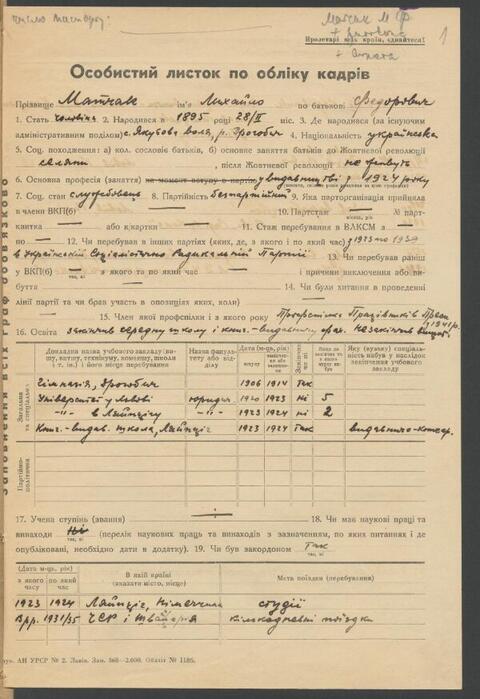 Матчак М Ф
1
Пролетарі всіх країн, єднайтеся!
Особистий листок по обліку кадрів
Прізвище Матчак ім'я Михайло по батькові Федорович
1. Стать чоловіча 2. Народився в 1895 році 28/II міс. 3. Де народився (за існуючим
адміністративним поділом) с. Якубова воля, р. Дрогобич 4. Національність українська
5. Соц. походження: а) кол. сословіє батьків, б) основне заняття батьків до Жовтневої революції
селяни, після Жовтневої революції не живуть
6. Основна професія (заняття) на момент вступу в партію у видавництві з 1924 року
7. Соц. стан службовець 8. Партійність безпартійний 9. Яка парторганізація прийняла
в члени ВКП(б) — 10. Партстаж — № парт-
квитка — або к/картки — 11. Стаж перебування в ВЛКСМ з
по — 12. Чи перебував в інших партіях (яких, де, з якого і по який час) з 1925 по 1939
в Українській Соціялістично Радикальній Партії 13. Чи перебував раніш
у ВКП(б) — з якого та по який час — і причини виключення або ви-
буття — 14. Чи були хитання в проведенні
лінії партії та чи брав участь в опозиціях яких, коли)
— 15. Член якої профспілки і з якого року Профспілка Працівників Преси з 1941 р.
16. Освіта закінчив середню школу і книг.-видавничу
Докладна назва учбового закладу (ви-
шу, втузу, технікуму, комвишу, школи
і т. ін.) і його місце перебування
Назва факуль-
тету або від-
ділу
Дата (м-ць, рік)
Яку (вузьку) спеціаль-
ність набув у наслідок
закінчення учбового
закладу
Загальна
та спеціальна
Гімназія, Дрогобич 1906 1914 так
Університет у Львові юридич. 1920 1923 ні 5
-"- в Ляйпціґу -"- 1923 1924 ні 2
Книг.-видав. школа, Ляйпціг 1923 1924 так видавничо-
Партійно-
політична
17. Учена ступінь (звання) — 18. Чи має наукові праці та
винаходи Ні (перелік наукових праць та винаходів з зазначенням, по яких питаннях і де
опубліковані, необхідно дати в додатку). 19. Чи був закордоном Так
Дата (м-ць, рік)
з якого
часу
по який
час
В якій країні
(вказати місто, місце)
Мета поїздки (перебування)
1923 1924 Ляйпціг, Німеччина студії
1931/35 ЧСР і Швайцарія кількаденні поїздки
АН УРСР № 2. Львів. Зам. 568—2.000. Обліт № 1186.